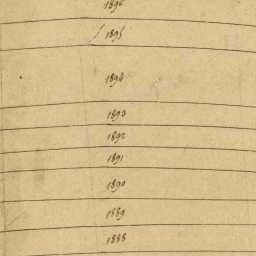 1896
1895
1894
1893
1892
1891
1890
1889
1888